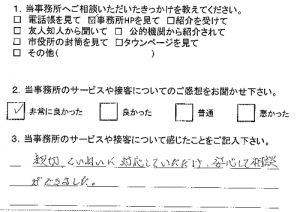 1. 当事務所へご相談いただいたきっかけを教えてください。
□ 電話帳を見て ☑事務所HPを見て □紹介を受けて
□ 友人知人から聞いて □ 公的機関から紹介されて
□ 市役所の封筒を見て □タウンページを見て
□ その他( )
2. 当事務所のサービスや接客についてのご感想をお聞かせ下さい。
☑ 非常に良かった □ 良かった □ 普通 □ 悪かった
3. 当事務所のサービスや接客について感じたことをご記入下さい。
親切、ていねいに対応していただけ、安心して相談
ができました。